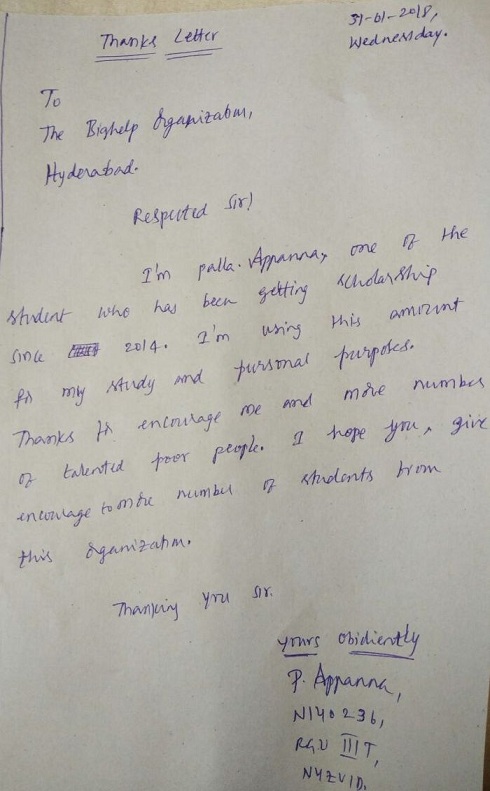 Thanks Letter
31-01-2018,
Wednesday.
To
The Bighelp Organization,
Hyderabad.
Respected Sir!
I'm palla. Appanna, one of the
student who has been getting scholarship
since 2014. I'm using this amount
for my study and pursonal purposes.
Thanks for encourage me and more number
of talented poor people. I hope you, give
encourage to more number of students from
this organization.
Thanking you sir.
yours obidiently
P. Appanna,
N140236,
RGU IIIT,
NUZVID.